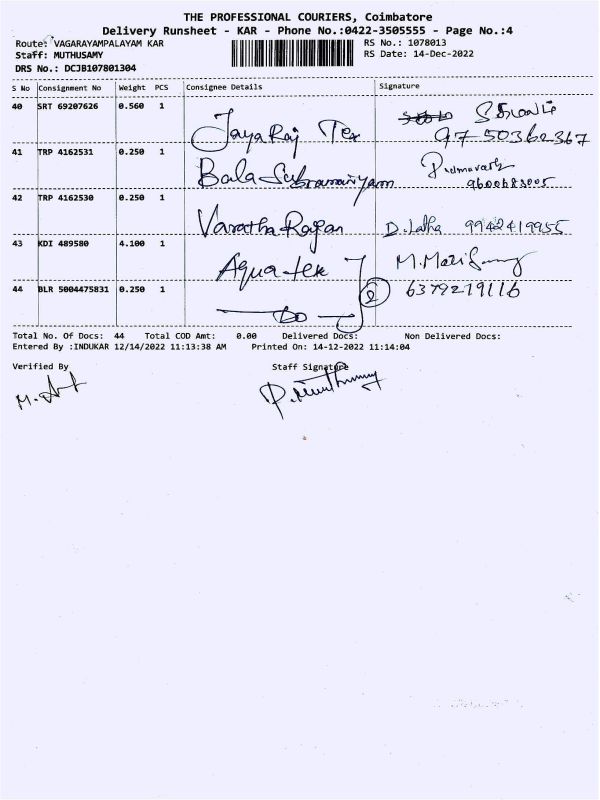 THE PROFESSIONAL COURIERS, Coimbatore
Delivery Runsheet - KAR - Phone No.:0422-3505555 - Page No.:4
Route: VAGARAYAMPALAYAM KAR
RS No.: 1078013
Staff: MUTHUSAMY
RS Date: 14-Dec-2022
DRS No.: DCJB107801304
S No Consignment No Weight PCS Consignee Details Signature
40 SRT 69207626 0.560 1 Jayaraj Tex
97 50362367
41 TRP 4162531 0.250 1 Bala Subramaniyam
9600683005
42 TRP 4162530 0.250 1 Varatha Rajan D. Latha 9942419955
43 KDI 489580 4.100 1 Aqua tek
44 BLR 5004475831 0.250 1 — Do — 2 6379219116
Total No. Of Docs: 44 Total COD Amt: 0.00 Delivered Docs: Non Delivered Docs:
Entered By :INDUKAR 12/14/2022 11:13:38 AM Printed On: 14-12-2022 11:14:04
Verified By Staff Signature